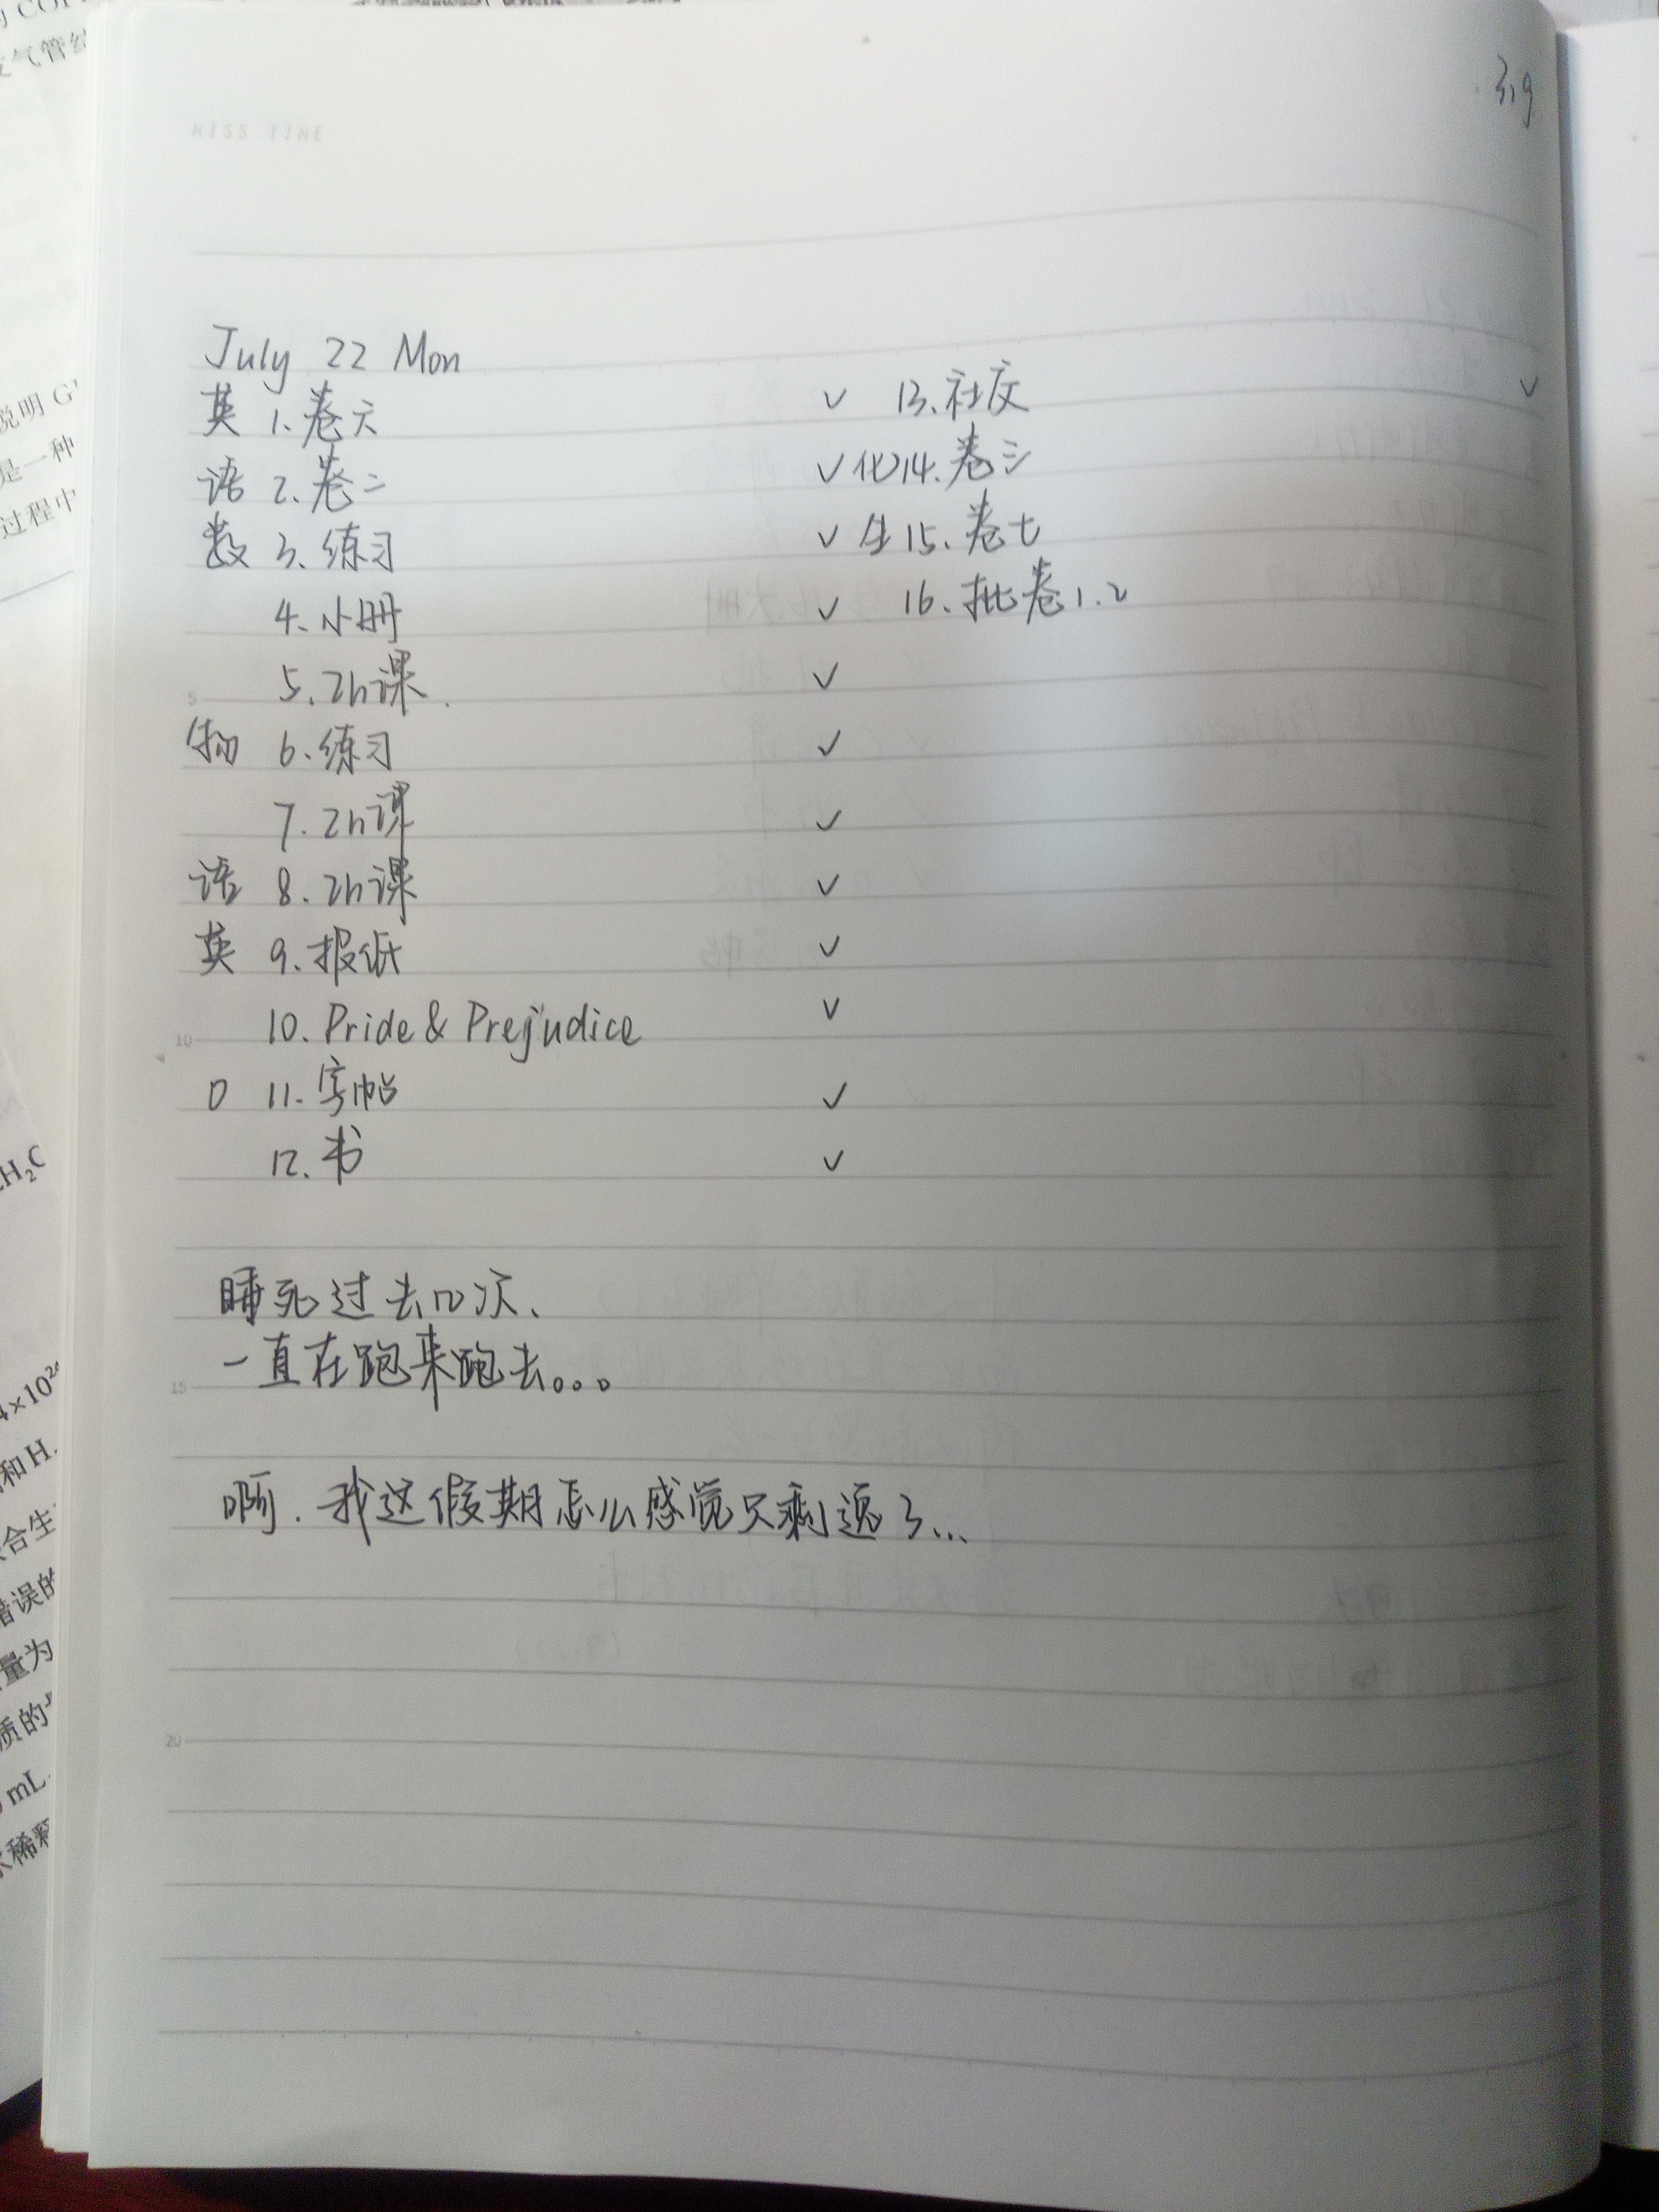 MISS TIME
319
July 22 Mon
英 1. 卷六 ✓
语 2. 卷二 ✓
数 3. 练习 ✓
4. 小册 ✓
5. 2h课. ✓
物 6. 练习 ✓
7. 2h课 ✓
语 8. 2h课 ✓
英 9. 报纸 ✓
10. Pride & Prejudice ✓
0 11. 字帖 ✓
12. 书 ✓
13. 社交 ✓
化 14. 卷三
生 15. 卷七
16. 批卷1.2
睡死过去n次、
一直在跑来跑去。。。
啊. 我这假期怎么感觉只剩了...
5
10
15
20
气管
说明 G
是一种
过程中
H₂C
4×10
和 H
合生
错误的
量为
质的
mL
稀释